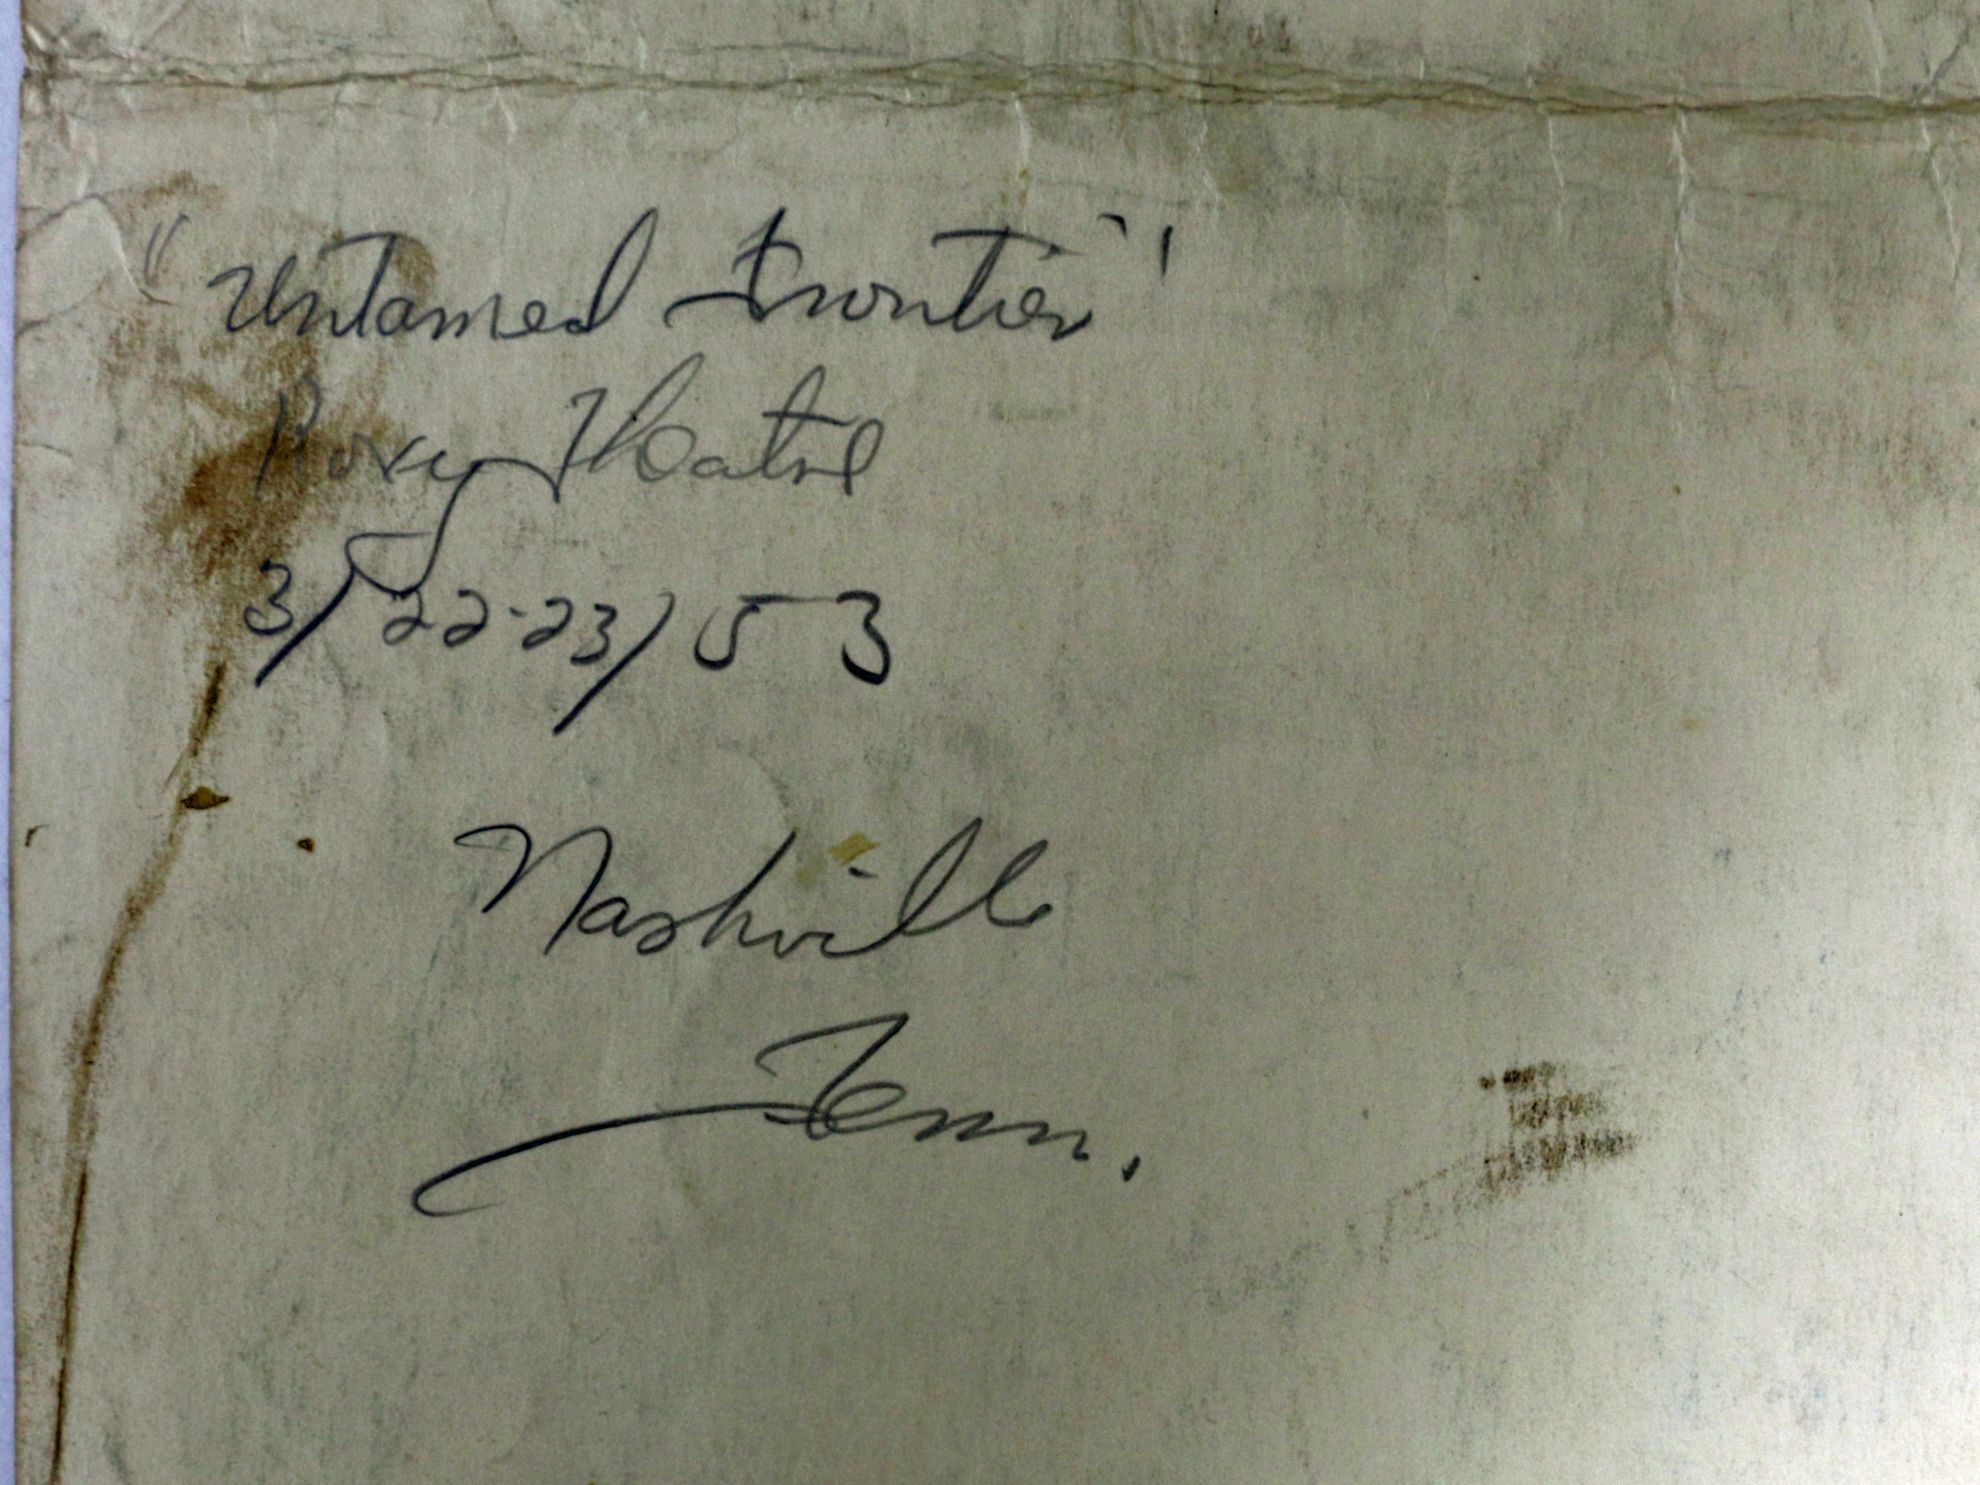 "Untamed Frontier"
Roxy Theatre
3/22-23/53
Nashville
Tenn.